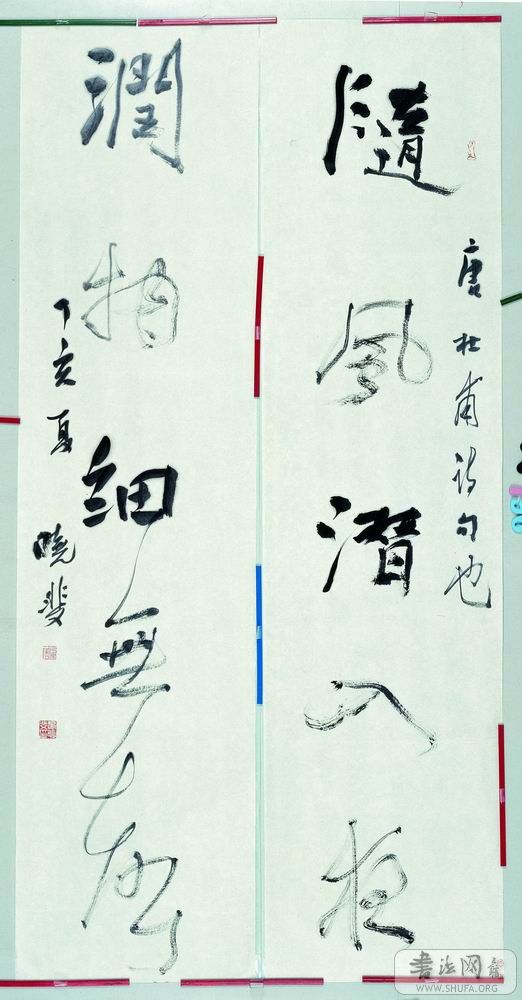 唐杜甫詩句也
隨風潛入夜
潤物細無聲
丁亥夏
曉斐
書法网
WWW.SHUFA.ORG